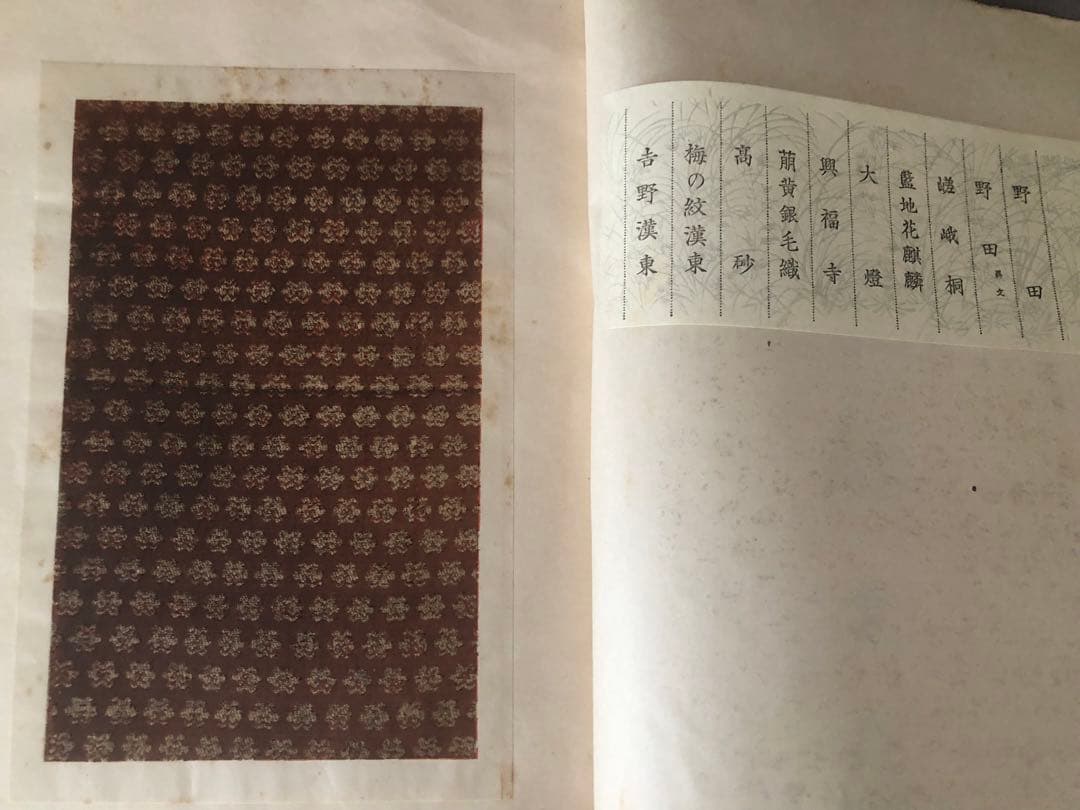 野田
野田 異文
嵯峨桐
藍地花麒麟
大燈
興福寺
萠黄銀毛織
高砂
梅の紋漢東
吉野漢東